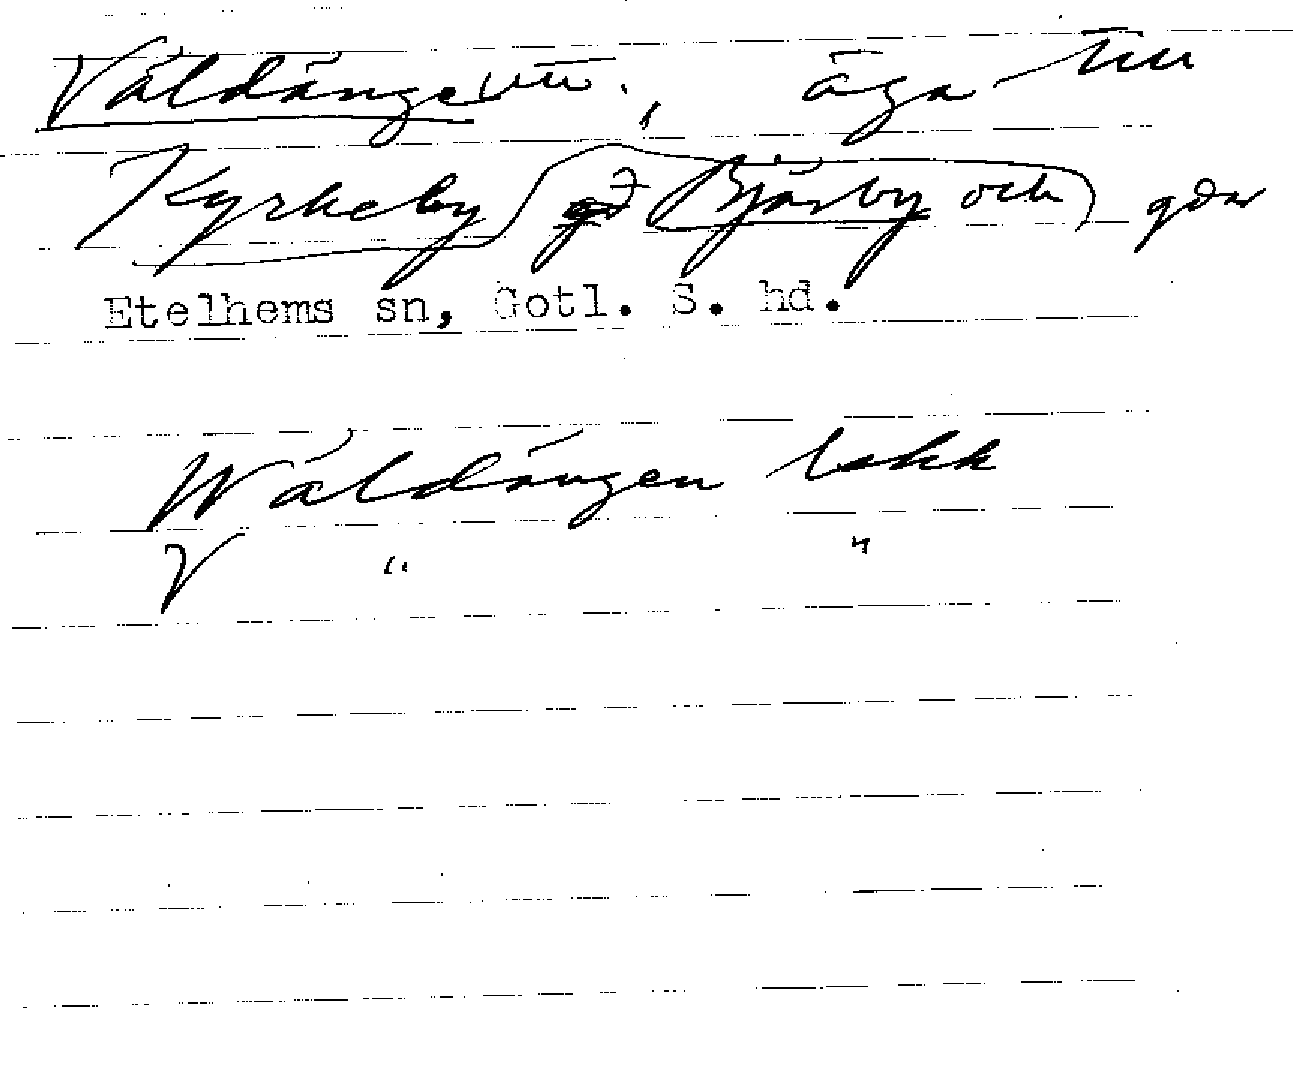 Väldänge, äga till
Kyrkeby gd Bjärby och gdar
Etelhems sn, Gotl. S. hd.
Wäldängen lakk
V " "